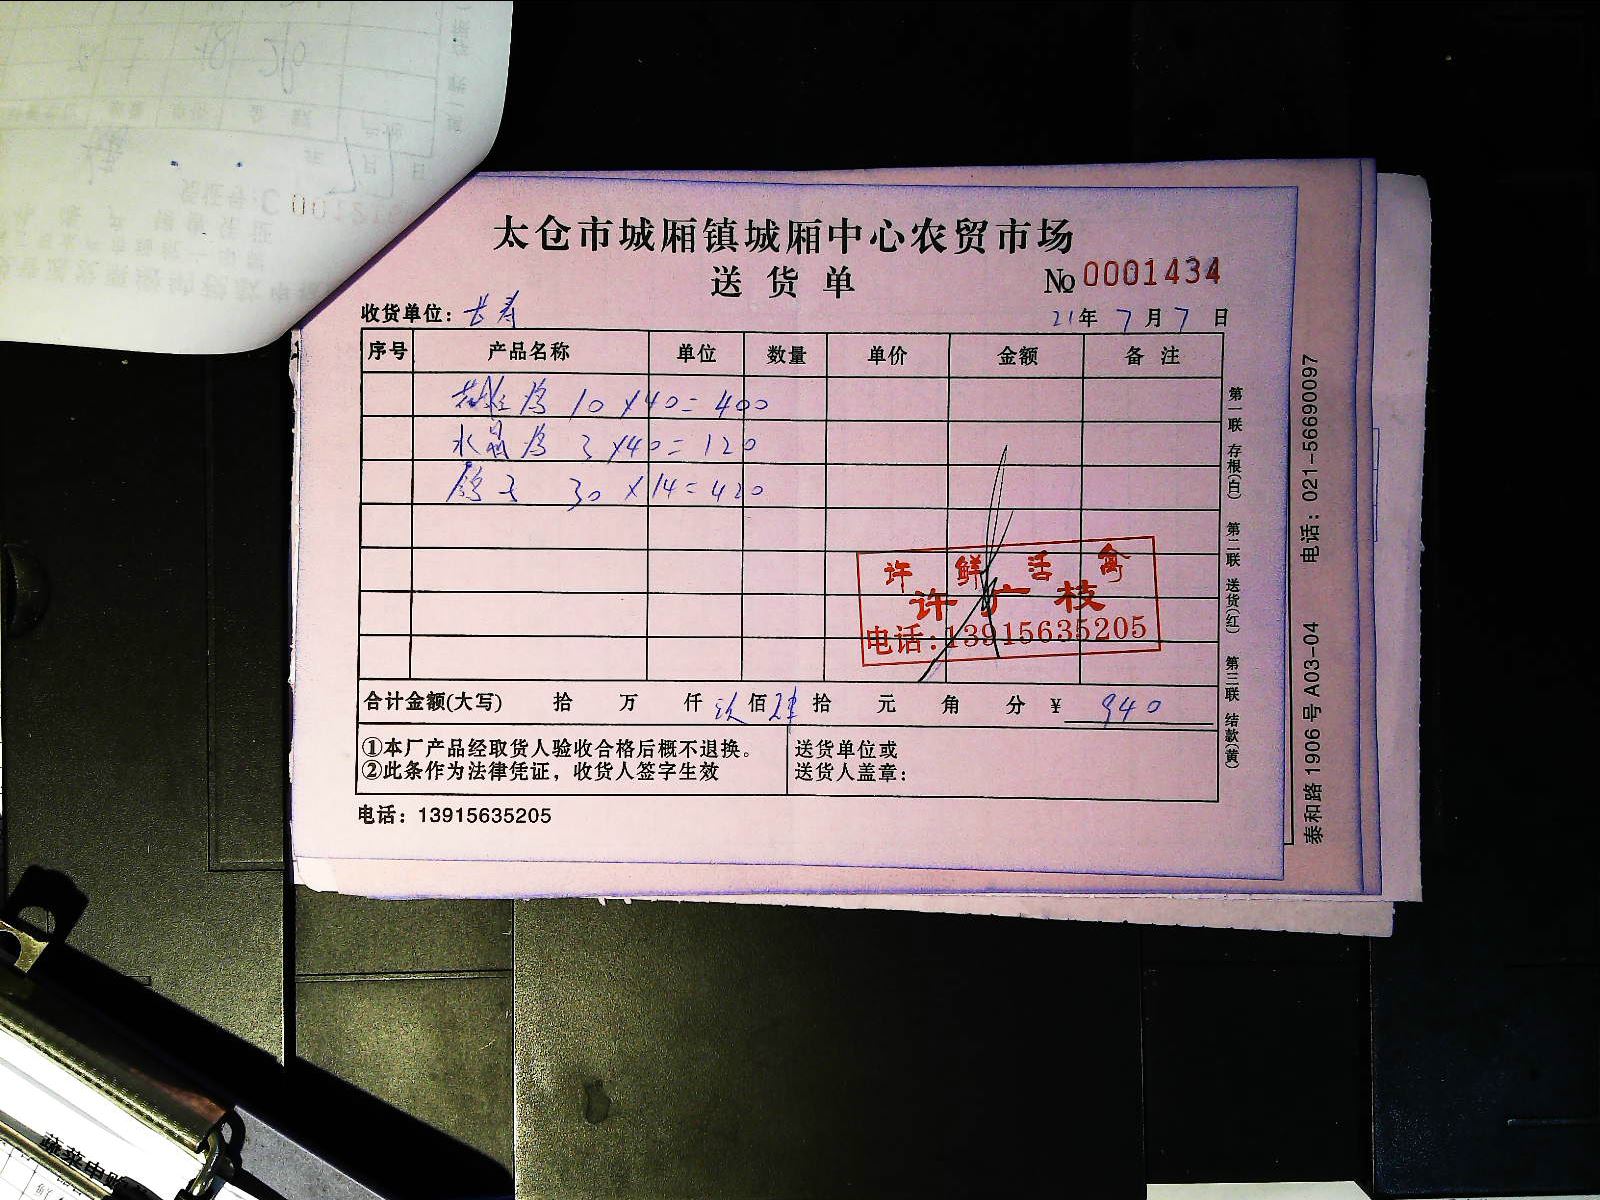 太仓市城厢镇城厢中心农贸市场
送货单 № 0001434
收货单位：长寿 21年7月7日
序号 产品名称 单位 数量 单价 金额 备注
10×40=400
水晶鸡 3×40=120
鸽子 30×14=420
许鲜活禽
许广枝
电话:13915635205
合计金额(大写) 拾 万 仟 玖佰肆拾 元 角 分 ¥ 940
①本厂产品经取货人验收合格后概不退换。
②此条作为法律凭证，收货人签字生效
送货单位或
送货人盖章：
电话：13915635205
第一联 存根(白) 第二联 送货(红) 第三联 结款(黄)
泰和路1906号A03-04 电话：021-56690097